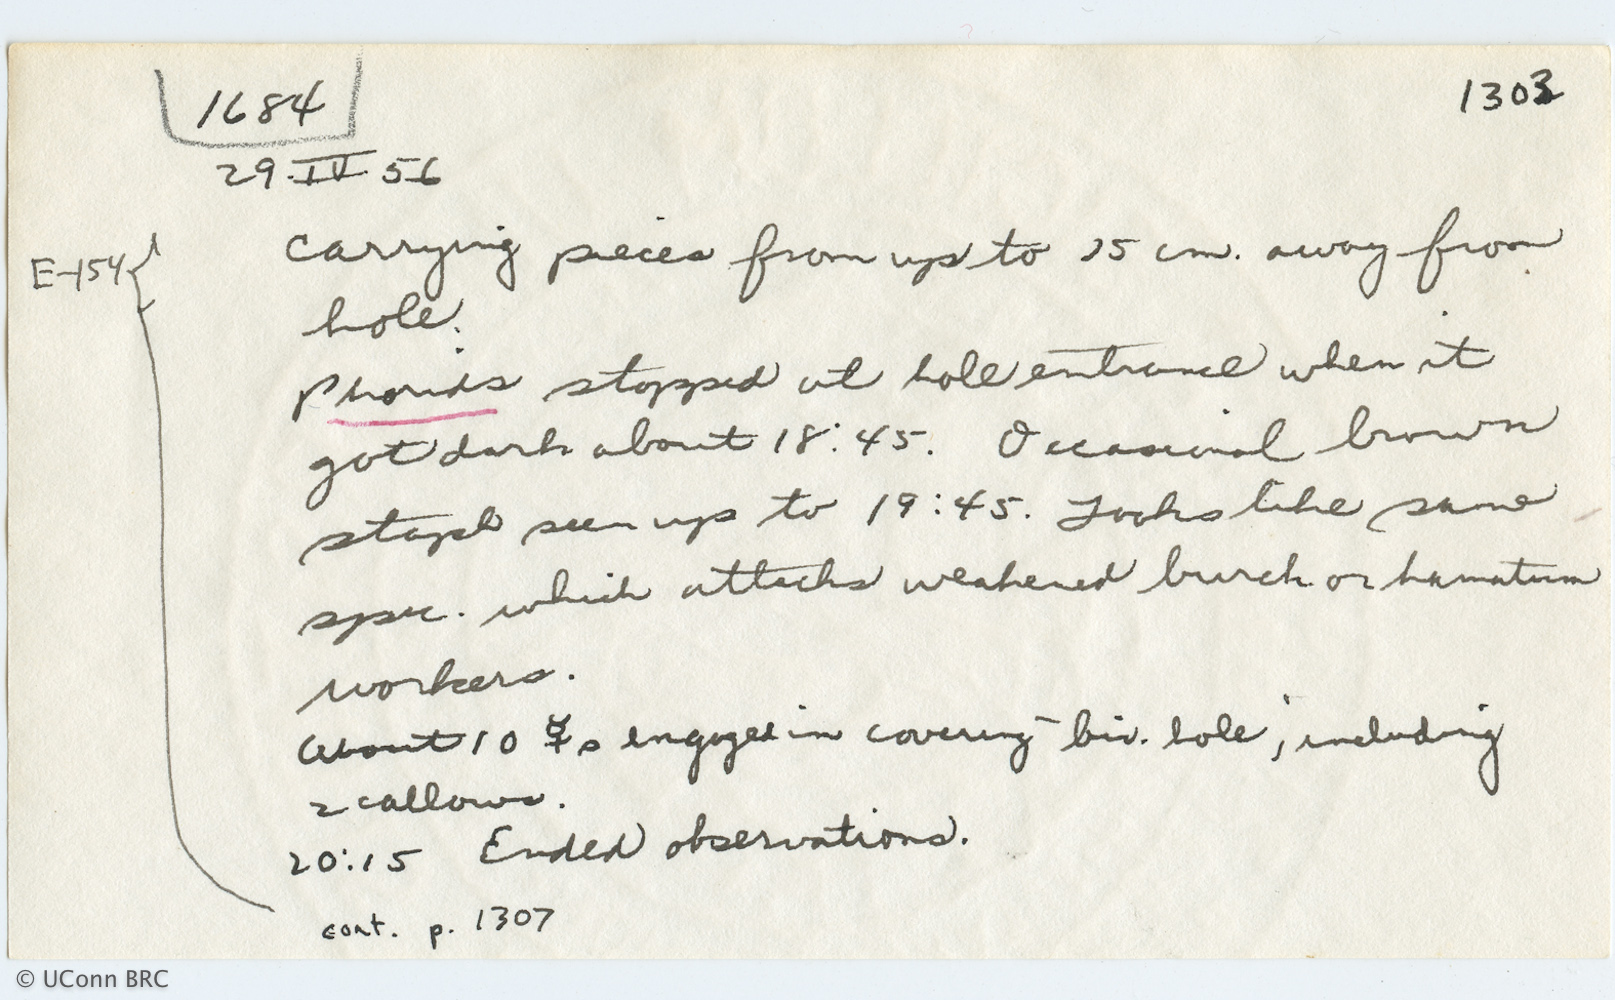 1684
1303
29.IV.56
E-154
carrying pieces from up to 15 cm. away from
hole.
Phorids stopped at hole entrance when it
got dark about 18:45. Occasional brown
staph seen up to 19:45. Looks like same
spec. which attacks weakened burch. or hamatum
workers.
About 10 ☿s engaged in covering biv. hole, including
2 callows.
20:15 Ended observations.
cont. p. 1307
© UConn BRC